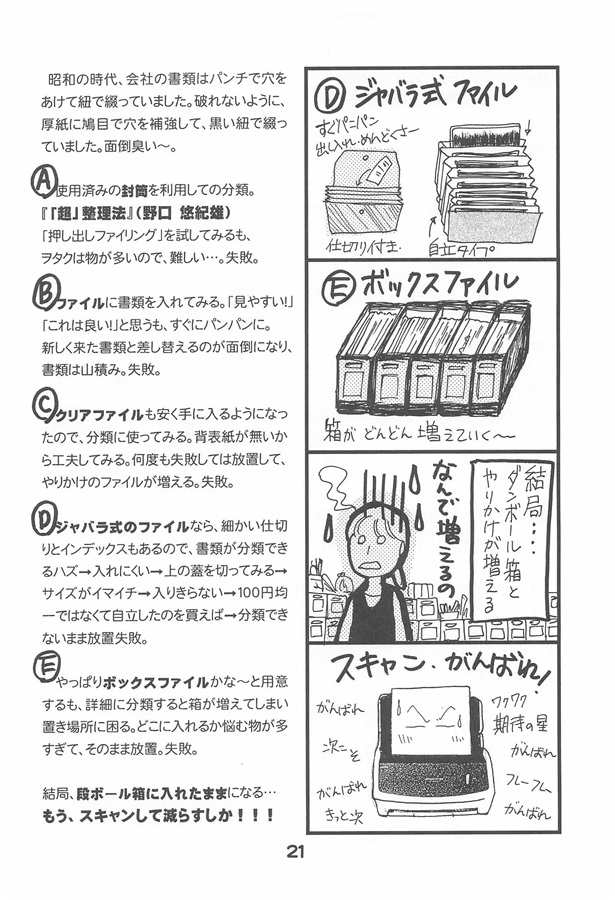 昭和の時代、会社の書類はパンチで穴を
あけて紐で綴っていました。破れないように、
厚紙に鳩目で穴を補強して、黒い紐で綴っ
ていました。面倒臭い〜。
Ⓐ使用済みの封筒を利用しての分類。
『「超」整理法』(野口 悠紀雄)
「押し出しファイリング」を試してみるも、
ヲタクは物が多いので、難しい…。失敗。
Ⓑファイルに書類を入れてみる。「見やすい!」
「これは良い!」と思うも、すぐにパンパンに。
新しく来た書類と差し替えるのが面倒になり、
書類は山積み。失敗。
Ⓒクリアファイルも安く手に入るようになっ
たので、分類に使ってみる。背表紙が無いか
ら工夫してみる。何度も失敗しては放置して、
やりかけのファイルが増える。失敗。
Ⓓジャバラ式のファイルなら、細かい仕切
りとインデックスもあるので、書類が分類でき
るハズ→入れにくい→上の蓋を切ってみる→
サイズがイマイチ→入りきらない→100円均
一ではなくて自立したのを買えば→分類でき
ないまま放置失敗。
Ⓔやっぱりボックスファイルかな〜と用意
するも、詳細に分類すると箱が増えてしまい
置き場所に困る。どこに入れるか悩む物が多
すぎて、そのまま放置。失敗。
結局、段ボール箱に入れたままになる…
もう、スキャンして減らすしか!!!
Ⓓ ジャバラ式 ファイル
すぐパンパン
出し入れ、めんどくさー
仕切り付き.
自立タイプ
Ⓔ ボックスファイル
箱が どんどん 増えていく〜〜
結局‥‥
ダンボール箱と
やりかけが増える
なんで増えるの
スキャン.がんばれ!
がんばれ
次こそ
がんばれ
きっと次
ワクワク
期待の星
がんばれ
フレーフレー
がんばれ
21